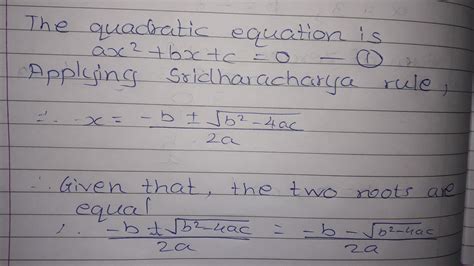 The quadratic equation is
ax² + bx + c = 0 — ①
Applying Sridharacharya rule,
∴ x = -b ± √b² - 4ac / 2a
∴ Given that, the two roots are
equal
∴ -b ± √b² - 4ac / 2a = -b - √b² - 4ac / 2a